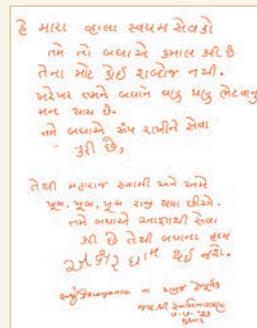 હે મારા વ્હાલા સ્વયમ સેવકો
તમે તો બધાએ કમાલ કરી છે
તેના માટે કોઈ શબ્દોજ નથી.
ખરેખર તમને બધાને ઘણુ ઘણુ ભેટવાનુ
મન થાય છે.
તમે બધાએ સંપ રાખીને સેવા
કરી છે,
તેથી મહારાજ સ્વામી અને અમે
ખૂબ, ખૂબ, ખૂબ રાજી થયા છીએ.
તમે બધાએ આજ્ઞાથી સેવા
કરી છે તેથી બધાના હૃદય
અક્ષરધામ થઈ જશે.
ના
જયશ્રી સ્વામિનારાયણ